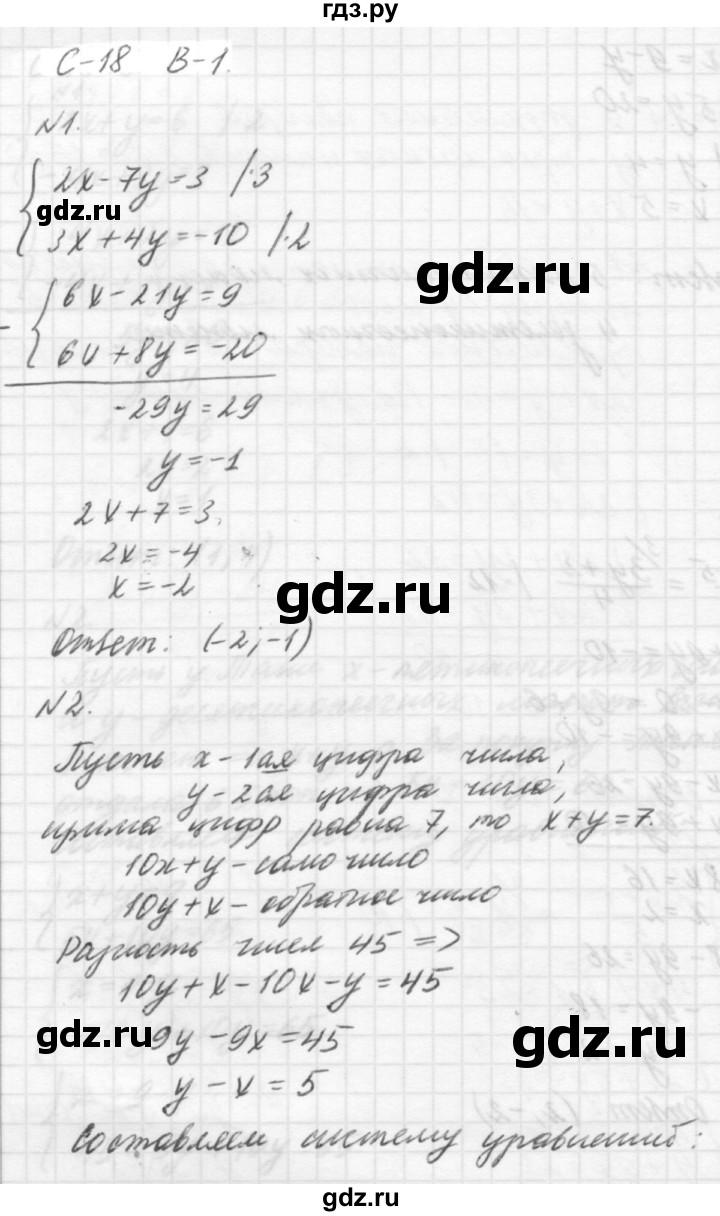 гдз.ру
С-18 В-1.
№1.
2x-7y=3 /·3
gdz.ru
3x+4y=-10 /·2
gdz.ru
- 6x-21y=9
6x+8y=-20
-29y=29
y=-1
2x+7=3,
2x=-4
x=-2
gdz.ru
Ответ: (-2;-1)
№2.
Пусть x-1ая цифра числа,
y-2ая цифра числа,
цифр равна 7, то x+y=7.
10x+y-само число
gdz.ru
10y+x-обратное число
Разность чисел 45 =>
10y+x-10x-y=45
gdz.ru
9y-9x=45
gdz.ru
y-x=5
Составляем систему уравнений:
gdz.ru